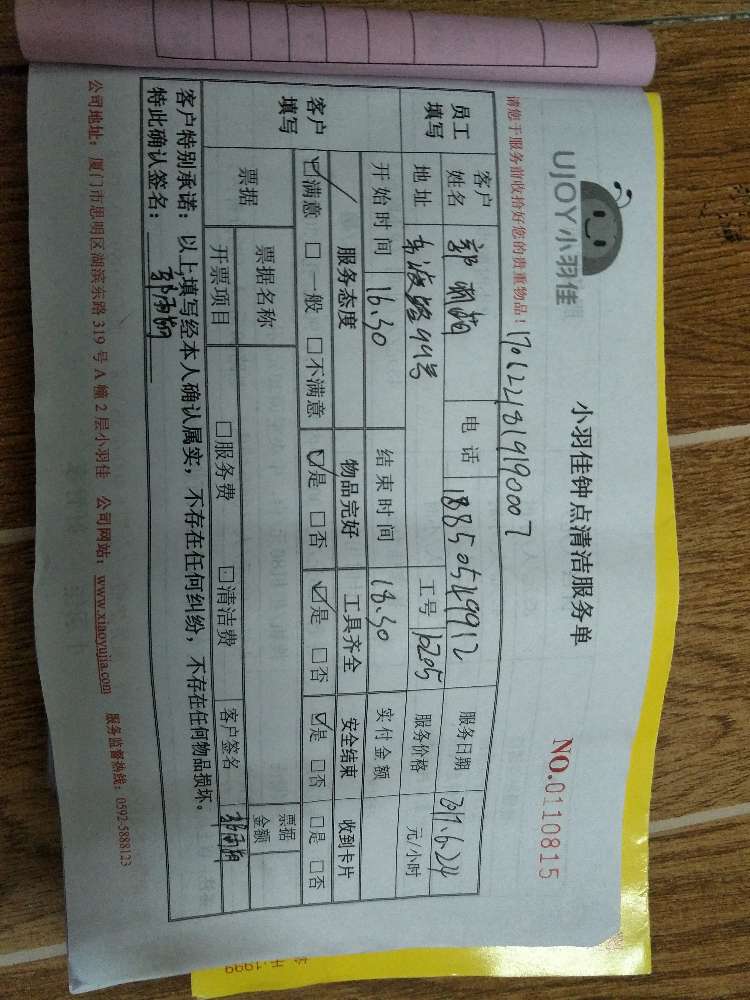 UJOY小羽佳
小羽佳钟点清洁服务单
NO.0110815
请您于服务前收拾好您的贵重物品！
1706224819190007
员工填写 客户姓名 电话 18850549912 服务日期 2017.6.24
地址 工号 1205 服务价格 元/小时
客户填写 开始时间 16.30 结束时间 18.30 实付金额
服务态度 物品完好 工具齐全 安全结束 收到卡片
☑满意 □一般 □不满意 ☑是 □否 ☑是 □否 ☑是 □否 □是 □否
票据 票据名称 票据金额
开票项目 □服务费 □清洁费 客户签名
客户特别承诺：以上填写经本人确认属实，不存在任何纠纷，不存在任何物品损坏。
特此确认签名：
公司地址：厦门市思明区湖滨东路 319 号 A 幢 2 层小羽佳 公司网站：www.xiaoyujia.com 服务监督热线：0592-5888123